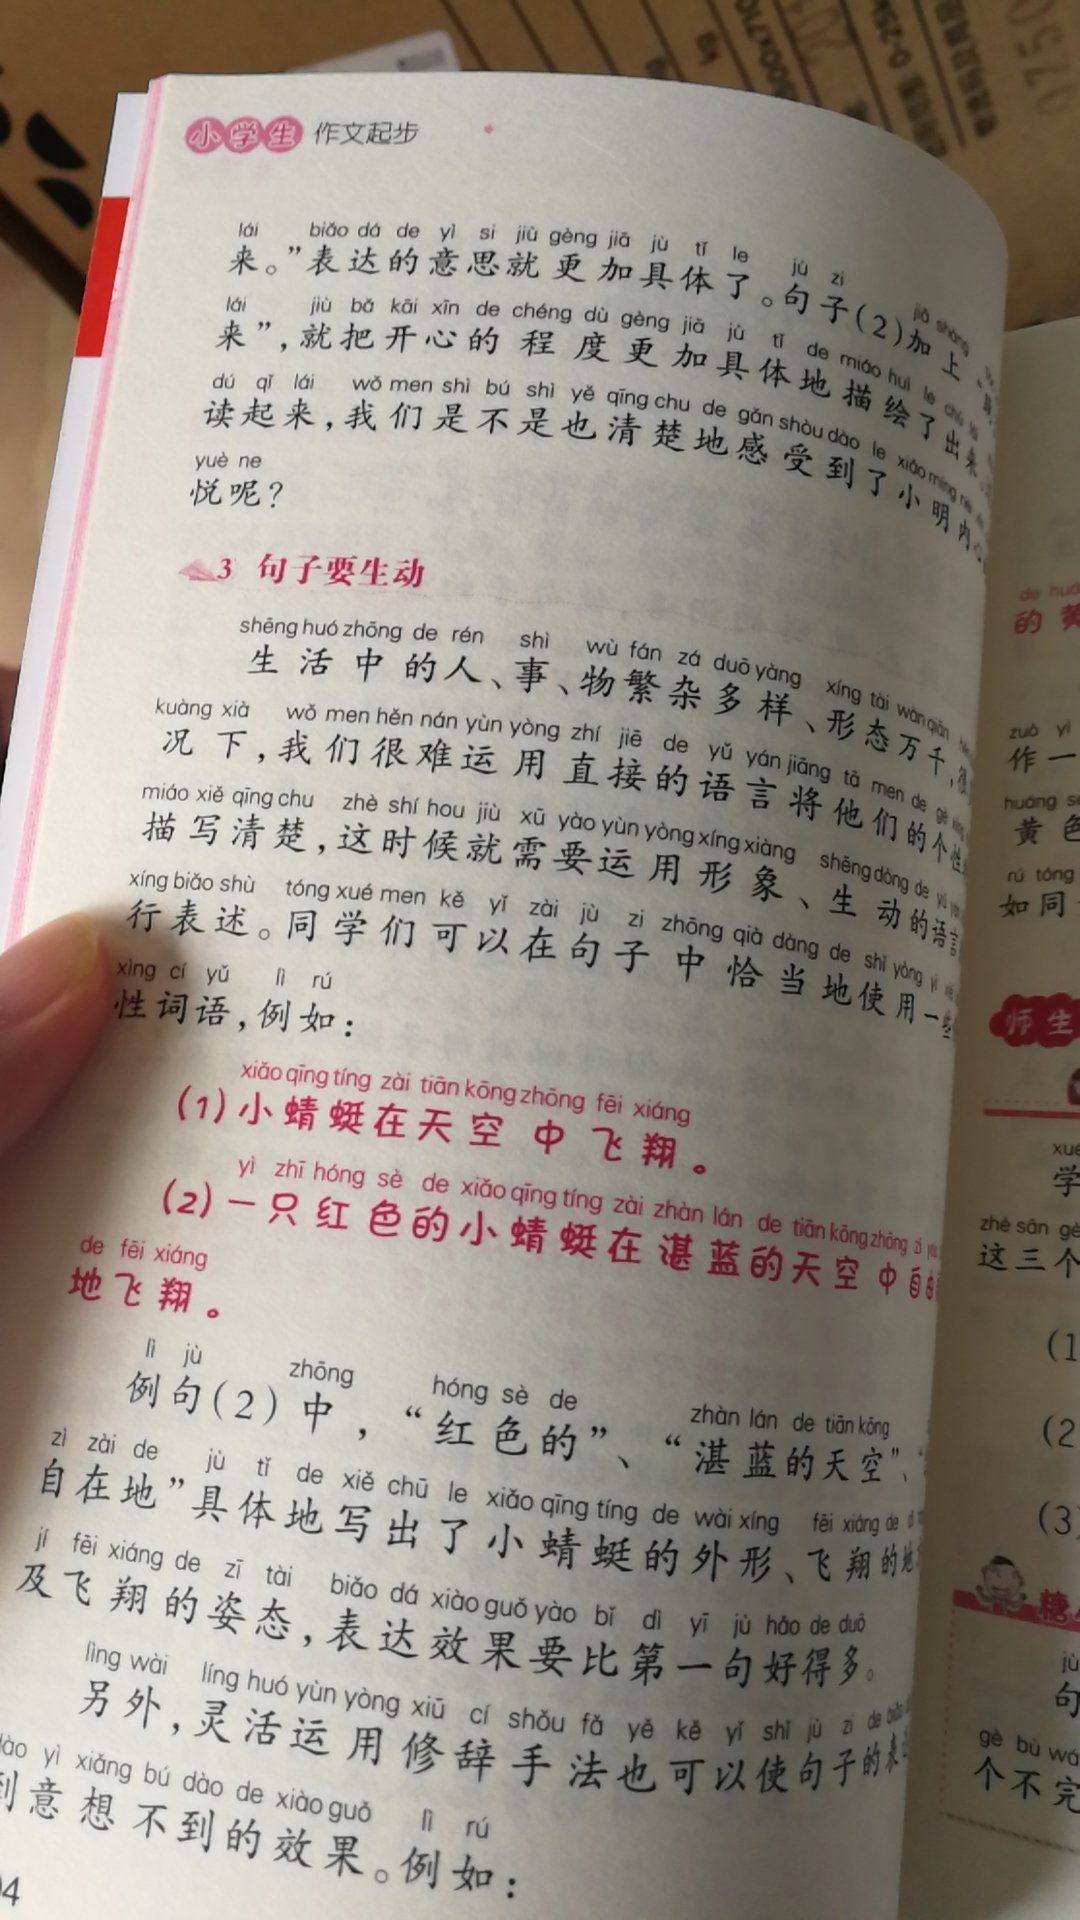 小学生 作文起步
lái biǎo dá de yì si jiù gèng jiā jù tǐ le jù zi jiā shàng
来。”表达的意思就更加具体了。句子(2)加上“
lái jiù bǎ kāi xīn de chéng dù gèng jiā jù tǐ de miáo huì le chū lái
来”,就把开心的程度更加具体地描绘了出来。
dú qǐ lái wǒ men shì bú shì yě qīng chu de gǎn shòu dào le xiǎo míng nèi
读起来,我们是不是也清楚地感受到了小明内心
yuè ne
悦呢?
3 句子要生动
shēng huó zhōng de rén shì wù fán zá duō yàng xíng tài wàn qiān
生活中的人、事、物繁杂多样、形态万千,很
kuàng xià wǒ men hěn nán yùn yòng zhí jiē de yǔ yán jiāng tā men de gè xìng
况下,我们很难运用直接的语言将他们的个性
miáo xiě qīng chu zhè shí hou jiù xū yào yùn yòng xíng xiàng shēng dòng de yǔ yán
描写清楚,这时候就需要运用形象、生动的语言
xíng biǎo shù tóng xué men kě yǐ zài jù zi zhōng qià dàng de shǐ yòng yì xiē
行表述。同学们可以在句子中恰当地使用一些
xìng cí yǔ lì rú
性词语,例如:
xiǎo qīng tíng zài tiān kōng zhōng fēi xiáng
(1)小蜻蜓在天空中飞翔。
yì zhī hóng sè de xiǎo qīng tíng zài zhàn lán de tiān kōng zhōng zì yóu
(2)一只红色的小蜻蜓在湛蓝的天空中自由
de fēi xiáng
地飞翔。
lì jù zhōng hóng sè de zhàn lán de tiān kōng
例句(2)中,“红色的”、“湛蓝的天空”、
zì zài de jù tǐ de xiě chū le xiǎo qīng tíng de wài xíng fēi xiáng de
自在地”具体地写出了小蜻蜓的外形、飞翔的地
jí fēi xiáng de zī tài biǎo dá xiào guǒ yào bǐ dì yī jù hǎo de duō
及飞翔的姿态,表达效果要比第一句好得多。
lìng wài líng huó yùn yòng xiū cí shǒu fǎ yě kě yǐ shǐ jù zi de biǎo
另外,灵活运用修辞手法也可以使句子的表
dào yì xiǎng bú dào de xiào guǒ lì rú
到意想不到的效果。例如:
04
de
的黄
zuò yì
作一
huáng
黄色
rú tóng
如同
师生
xué
学
zhè sān gè
这三个
(1
(2
(3
糖
jù
句
gè bù wán
个不完